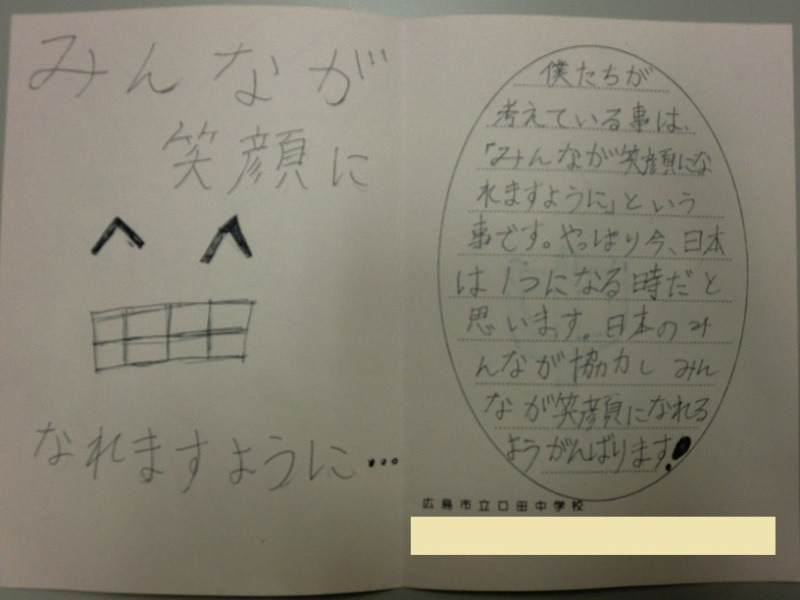 みんなが
笑顔に
なれますように…
僕たちが
考えている事は、
「みんなが笑顔にな
れますように」という
事です。やっぱり今、日本
は1つになる時だと
思います。日本のみ
んなが協力しみん
なが笑顔になれる
ようがんばります!
広島市立口田中学校